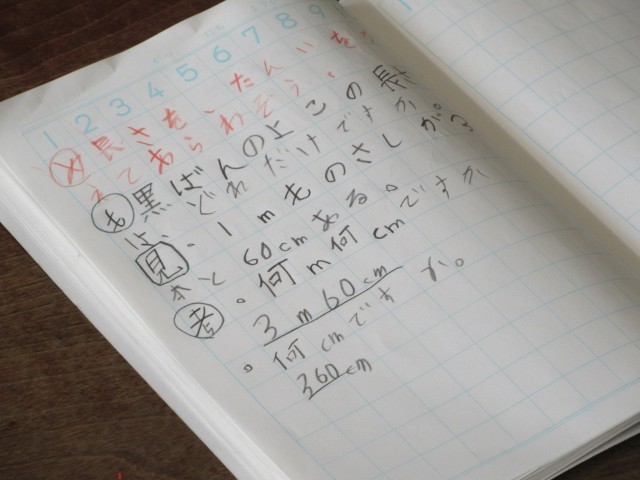 1 2 3 4 5 6 7 8 9
め 長さを、たんいを
えてあらわそう。
も 黒ばんのよこの長さ
は、どれだけですか。
見・1mものさしが3
本と60cmある。
考 。何m何cmですか
3m60cm
。何cmですか。
360cm
1